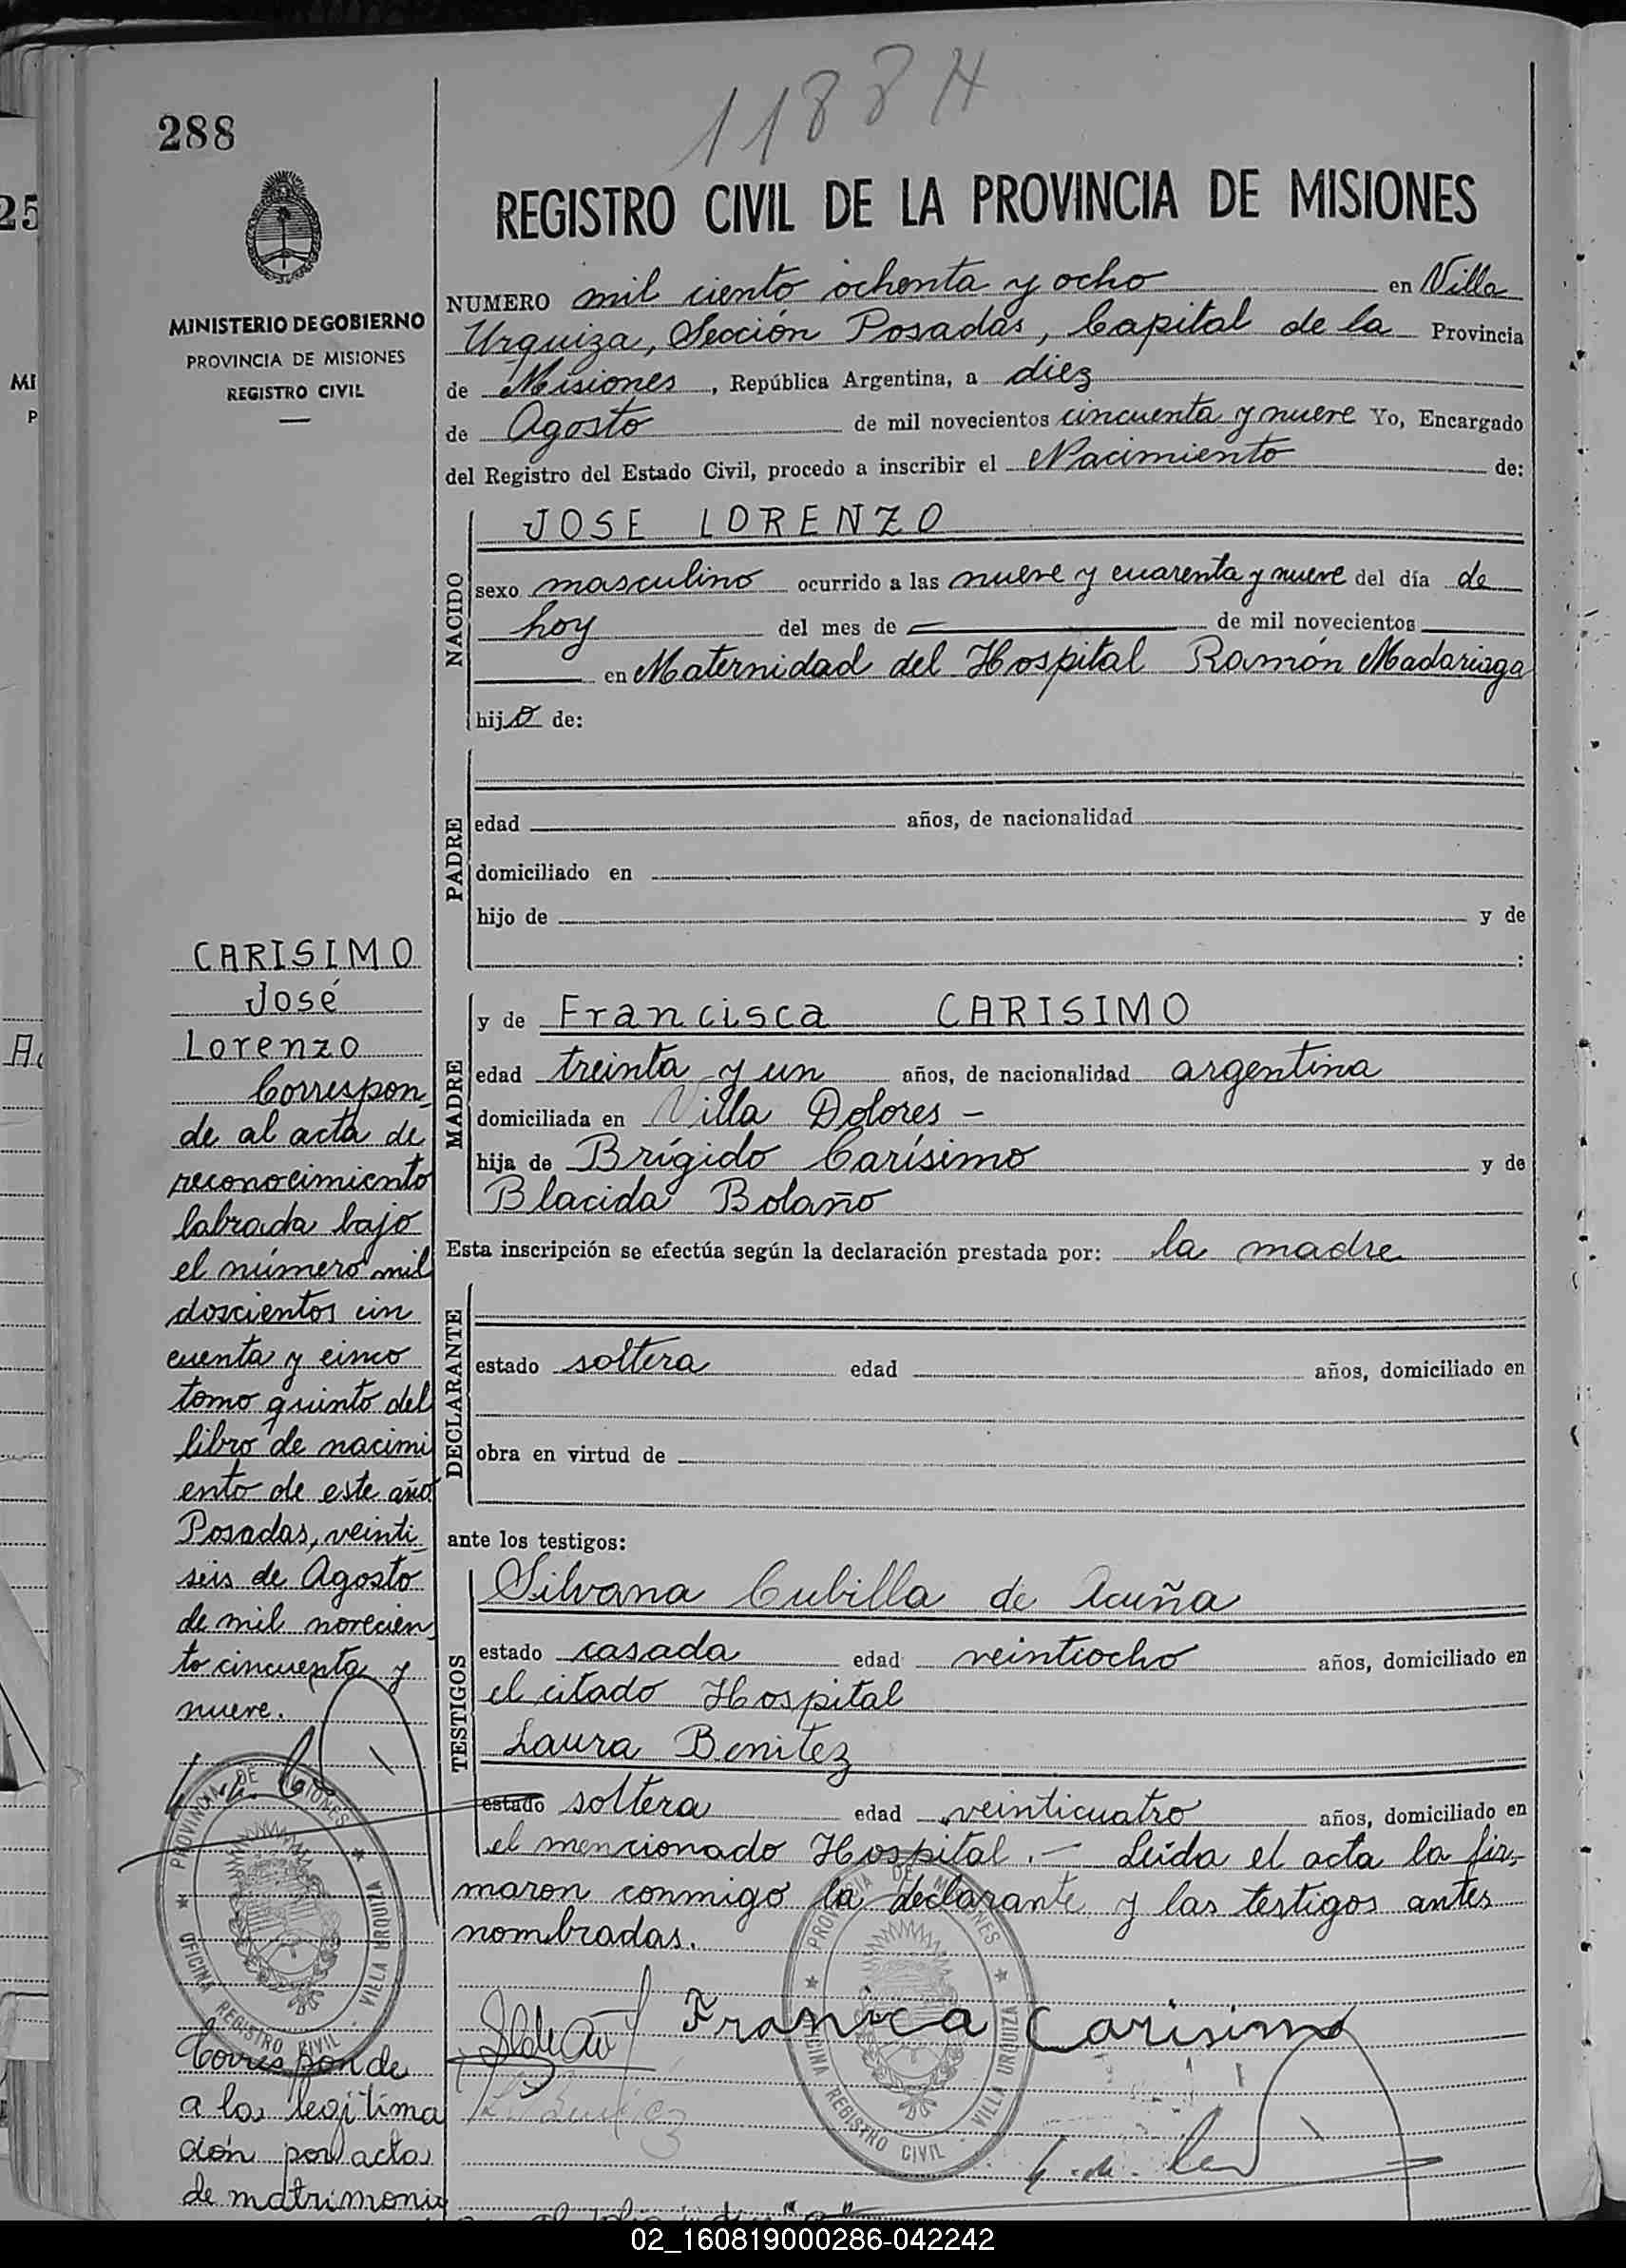 1188 H
288
REGISTRO CIVIL DE LA PROVINCIA DE MISIONES
MINISTERIO DE GOBIERNO
PROVINCIA DE MISIONES
REGISTRO CIVIL
NUMERO mil ciento ochenta y ocho en Villa
Urquiza, Sección Posadas, Capital de la Provincia
de Misiones, República Argentina, a diez
de Agosto de mil novecientos cincuenta y nueve Yo, Encargado
del Registro del Estado Civil, procedo a inscribir el Nacimiento de:
NACIDO
JOSE LORENZO
sexo masculino ocurrido a las nueve y cuarenta y nueve del día de
hoy del mes de de mil novecientos
en Maternidad del Hospital Ramón Madariaga
hijo de:
PADRE
edad años, de nacionalidad
domiciliado en
hijo de y de
:
MADRE
y de Francisca CARISIMO
edad treinta y un años, de nacionalidad argentina
domiciliada en Villa Dolores -
hija de Brígido Carísimo y de
Blacida Bolaño
Esta inscripción se efectúa según la declaración prestada por: la madre
DECLARANTE
estado soltera edad años, domiciliado en
obra en virtud de
ante los testigos:
TESTIGOS
Silvana Cubilla de Acuña
estado casada edad veintiocho años, domiciliado en
el citado Hospital
Laura Benitez
estado soltera edad veinticuatro años, domiciliado en
el mencionado Hospital.- Leída el acta la fir-
maron conmigo la declarante y las testigos antes
nombradas.
Franica Carisimo
PROVINCIA DE MISIONES
OFICINA REGISTRO CIVIL - VILLA URQUIZA
CARISIMO
José
Lorenzo
Correspon-
de al acta de
reconocimiento
labrada bajo
el número mil
doscientos cin
cuenta y cinco
tomo quinto del
libro de nacimi
ento de este año
Posadas, veinti-
seis de Agosto
de mil novecien-
to cincuenta y
nueve.
PROVINCIA DE MISIONES
OFICINA REGISTRO CIVIL - VILLA URQUIZA
Corresponde
a la legitima
ción por acta
de matrimonio
25
MI
P
02_160819000286-042242